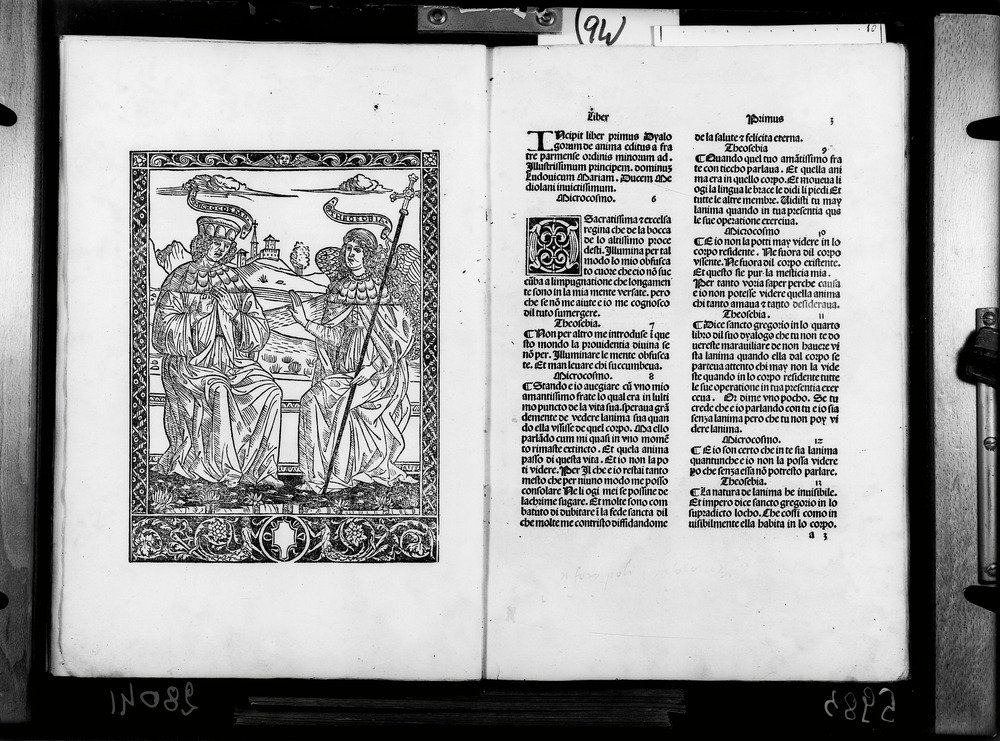 (9W
10
MICROCOSMO
THEOSOBIA
Liber
Primus 3
INcipit liber primus Dyalo
gorum de anima editus a fra
tre parmense ordinis minorum ad.
Illustrissimum principem. dominus
Ludouicum Mariam. Ducem Me
diolani inuictissimum.
Microcosmo. 6
Sacratissima ⁊ excelsa
regina che de la bocca
de lo altissimo proce
desti. Illumina per tal
modo lo mio obfusca
to cuore che eio nõ suc
cũba a limpugnatione che longamen
te sono in la mia mente versate. pero
che se nõ me aiute e io me cognosco
dil tuto sumergere.
Theosebia. 7
¶ Non per altro me introduse ĩ que
sto mondo la prouidentia diuina se
nõ per. Illuminare le mente obfusca
te. Et man leuare chi succumbeua.
Microcosmo. 8
¶ Stando e io auegiare cũ vno mio
amantissimo frate lo qual era in lulti
mo puncto de la vita sua. speraua grã
demente de vedere lanima sua quan
do ella vssisse de quel corpo. Ma ello
parlãdo cum mi quasi in vno momẽ
to rimaste extincto. Et quela anima
passo di questa vita. Et io non la po
ti videre. Per Il che e io restai tanto
mesto che per niuno modo me posso
consolare Ne li ogi mei se possine de
lachrime sugare. Et molte sono com
batuto di dubitare ĩ la fede sancta dil
che molte me contristo diffidandome
de la salute ⁊ felicita eterna.
Theosebia 9
¶ Quando quel tuo amãtissimo fra
te con tiecho parlaua. Et quella ani
ma era in quello corpo. Et moueua li
ogi la lingua le brace le didi li piedi Et
tutte le altre membre. Uidisti tu may
lanima quando in tua presentia que
le sue operatione exerciua.
Microcosmo 10
¶ E io non la potti may videre in lo
corpo residente. Ne fuora dil corpo
vssente. Ne fuora dil corpo existente.
Et questo sie pur la mesticia mia.
Per tanto voria saper perche causa
e io non potesse videre quella anima
chi tanto amaua ⁊ tanto desideraua.
Theosebia. 11
¶ Dice sancto gregorio in lo quarto
libro dil suo dyalogo che tu non te do
uereste marauiliare de non hauere vi
sta lanima quando ella dal corpo se
parteua attento chi may non la vide
ste quando in lo corpo residente tutte
le sue operatione in tua presentia exer
ceua. Or dime vno pocho. Se tu
crede che e io parlando con tu e io sia
senza lanima pero che tu non poy vi
dere lanima.
Microcosmo. 12
¶ E io son certo che in te sia lanima
quantunche e io non la possa videre
ꝑo che senza essa nõ potresto parlare.
Theosebia. 13
¶ La natura de lanima he inuisibile.
Et impero dice sancto gregorio in lo
supradicto locho. Che cossi como in
uisibilmente ella habita in lo corpo.
a 3
28041
5983